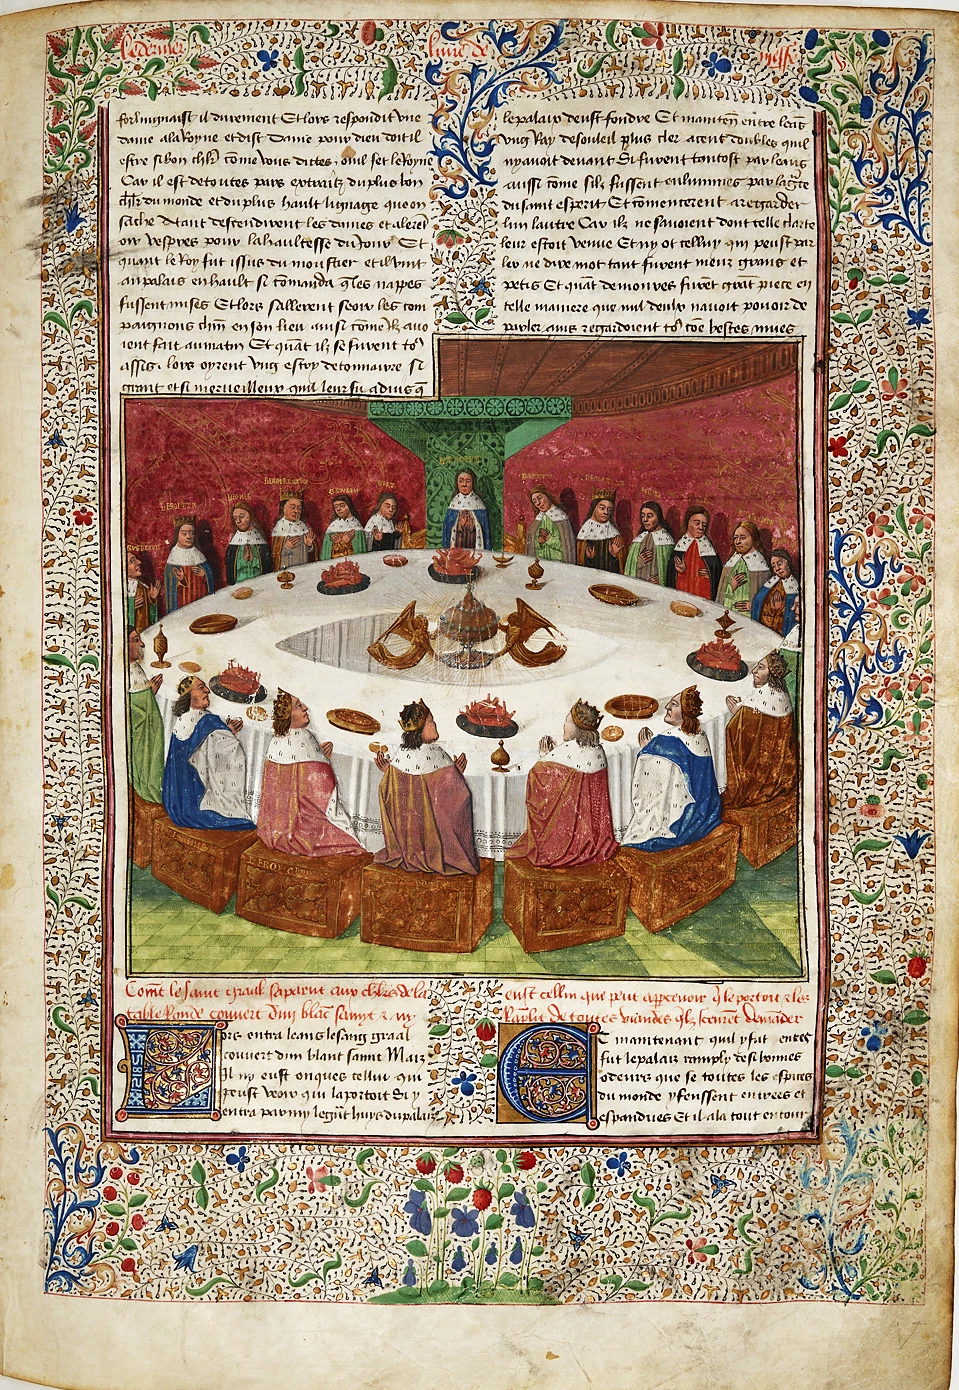 Le dernier
livre de
messe
forlingnaist il durement Et lors respondit vne
dame ala Royne et dist Dame pour dieu doit il
estre si bon chlr come vous dictes. ouil fet le Royne
Car il est de toutes pars extraitz du plus bon
chlr du monde et du plus hault lignage que on
sache Atant descendirent les dames et alerent
oir vespres pour la haultesse du Jour Et
quant le Roy fut issus du moustier et il vint
au palais en hault si comanda q les nappes
fussent mises Et lors sallerent seoir les com
paignons chun en son lieu aussi come ilz auo
ient fait au matin Et quant ilz se furent to9
assis. lors oyrent vng estoy de tonnairre si
grant et si merueilleux quil leur fu aduis q
le palais deust fondre Et mainten entre leans
vng Ray de souleil plus cler a cent doubles quil
nyauoit deuant Si furent tantost par leans
aussi come silz fussent enluminés par la gce
du saint esperit Et comencerent a regarder
lun lautre Car ilz ne sauoient dont telle clarte
leur estoit venue Et ny ot celluy qui peust par
ler ne dire mot tant furent menz grans et
petis Et quat demoures furet grat piece en
telle maniere que nul deulx nauoit pouoir de
parler ains regardoient to9 coe bestes mues
Comt le saint graal saparut aux chlrs de la
table Ronde couuert dun blac samyt & ny
eust cellui que peut apperceuoir q le portoit & les
Raplit de toutes viandes qlz sceuret demader
Apres entra leans le sang graal
couuert dun blant samit Maiz
Il ny eust onques cellui qui
peust veoir qui laportoit Si y
entra parmy le grat huys du palaiz
Et maintenant quil y fut entre
fut le palaiz remply de si bonnes
odeurs que se toutes les espices
du monde y feussent entrees et
espandues Et il ala tout entour